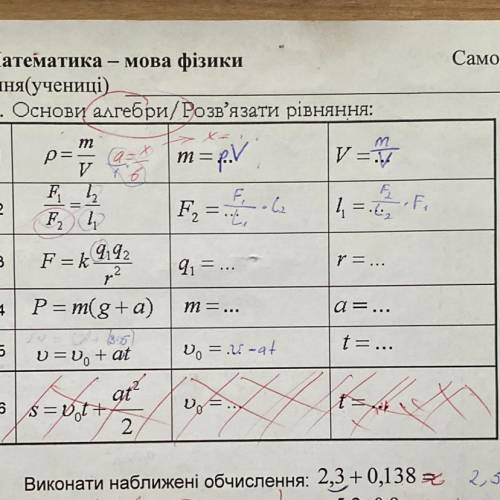 Математика – мова фізики Само
ння(учениці)
. Основи алгебри/Розв'язати рівняння:
ρ = m/V a = x/б x = m = ρ·V V = m/V
2 F₁/F₂ = l₂/l₁ F₂ = F₁/L₁ · L₂ l₁ = F₂/L₂ · F₁
3 F = k q₁q₂/r² q₁ = ... r = ...
4 P = m(g + a) m = ... a = ...
5 υ = υ₀ + at υ₀ = υ - at t = ...
6 s = υ₀t + at²/2 υ₀ = ... t = ...
Виконати наближені обчислення: 2,3 + 0,138 =